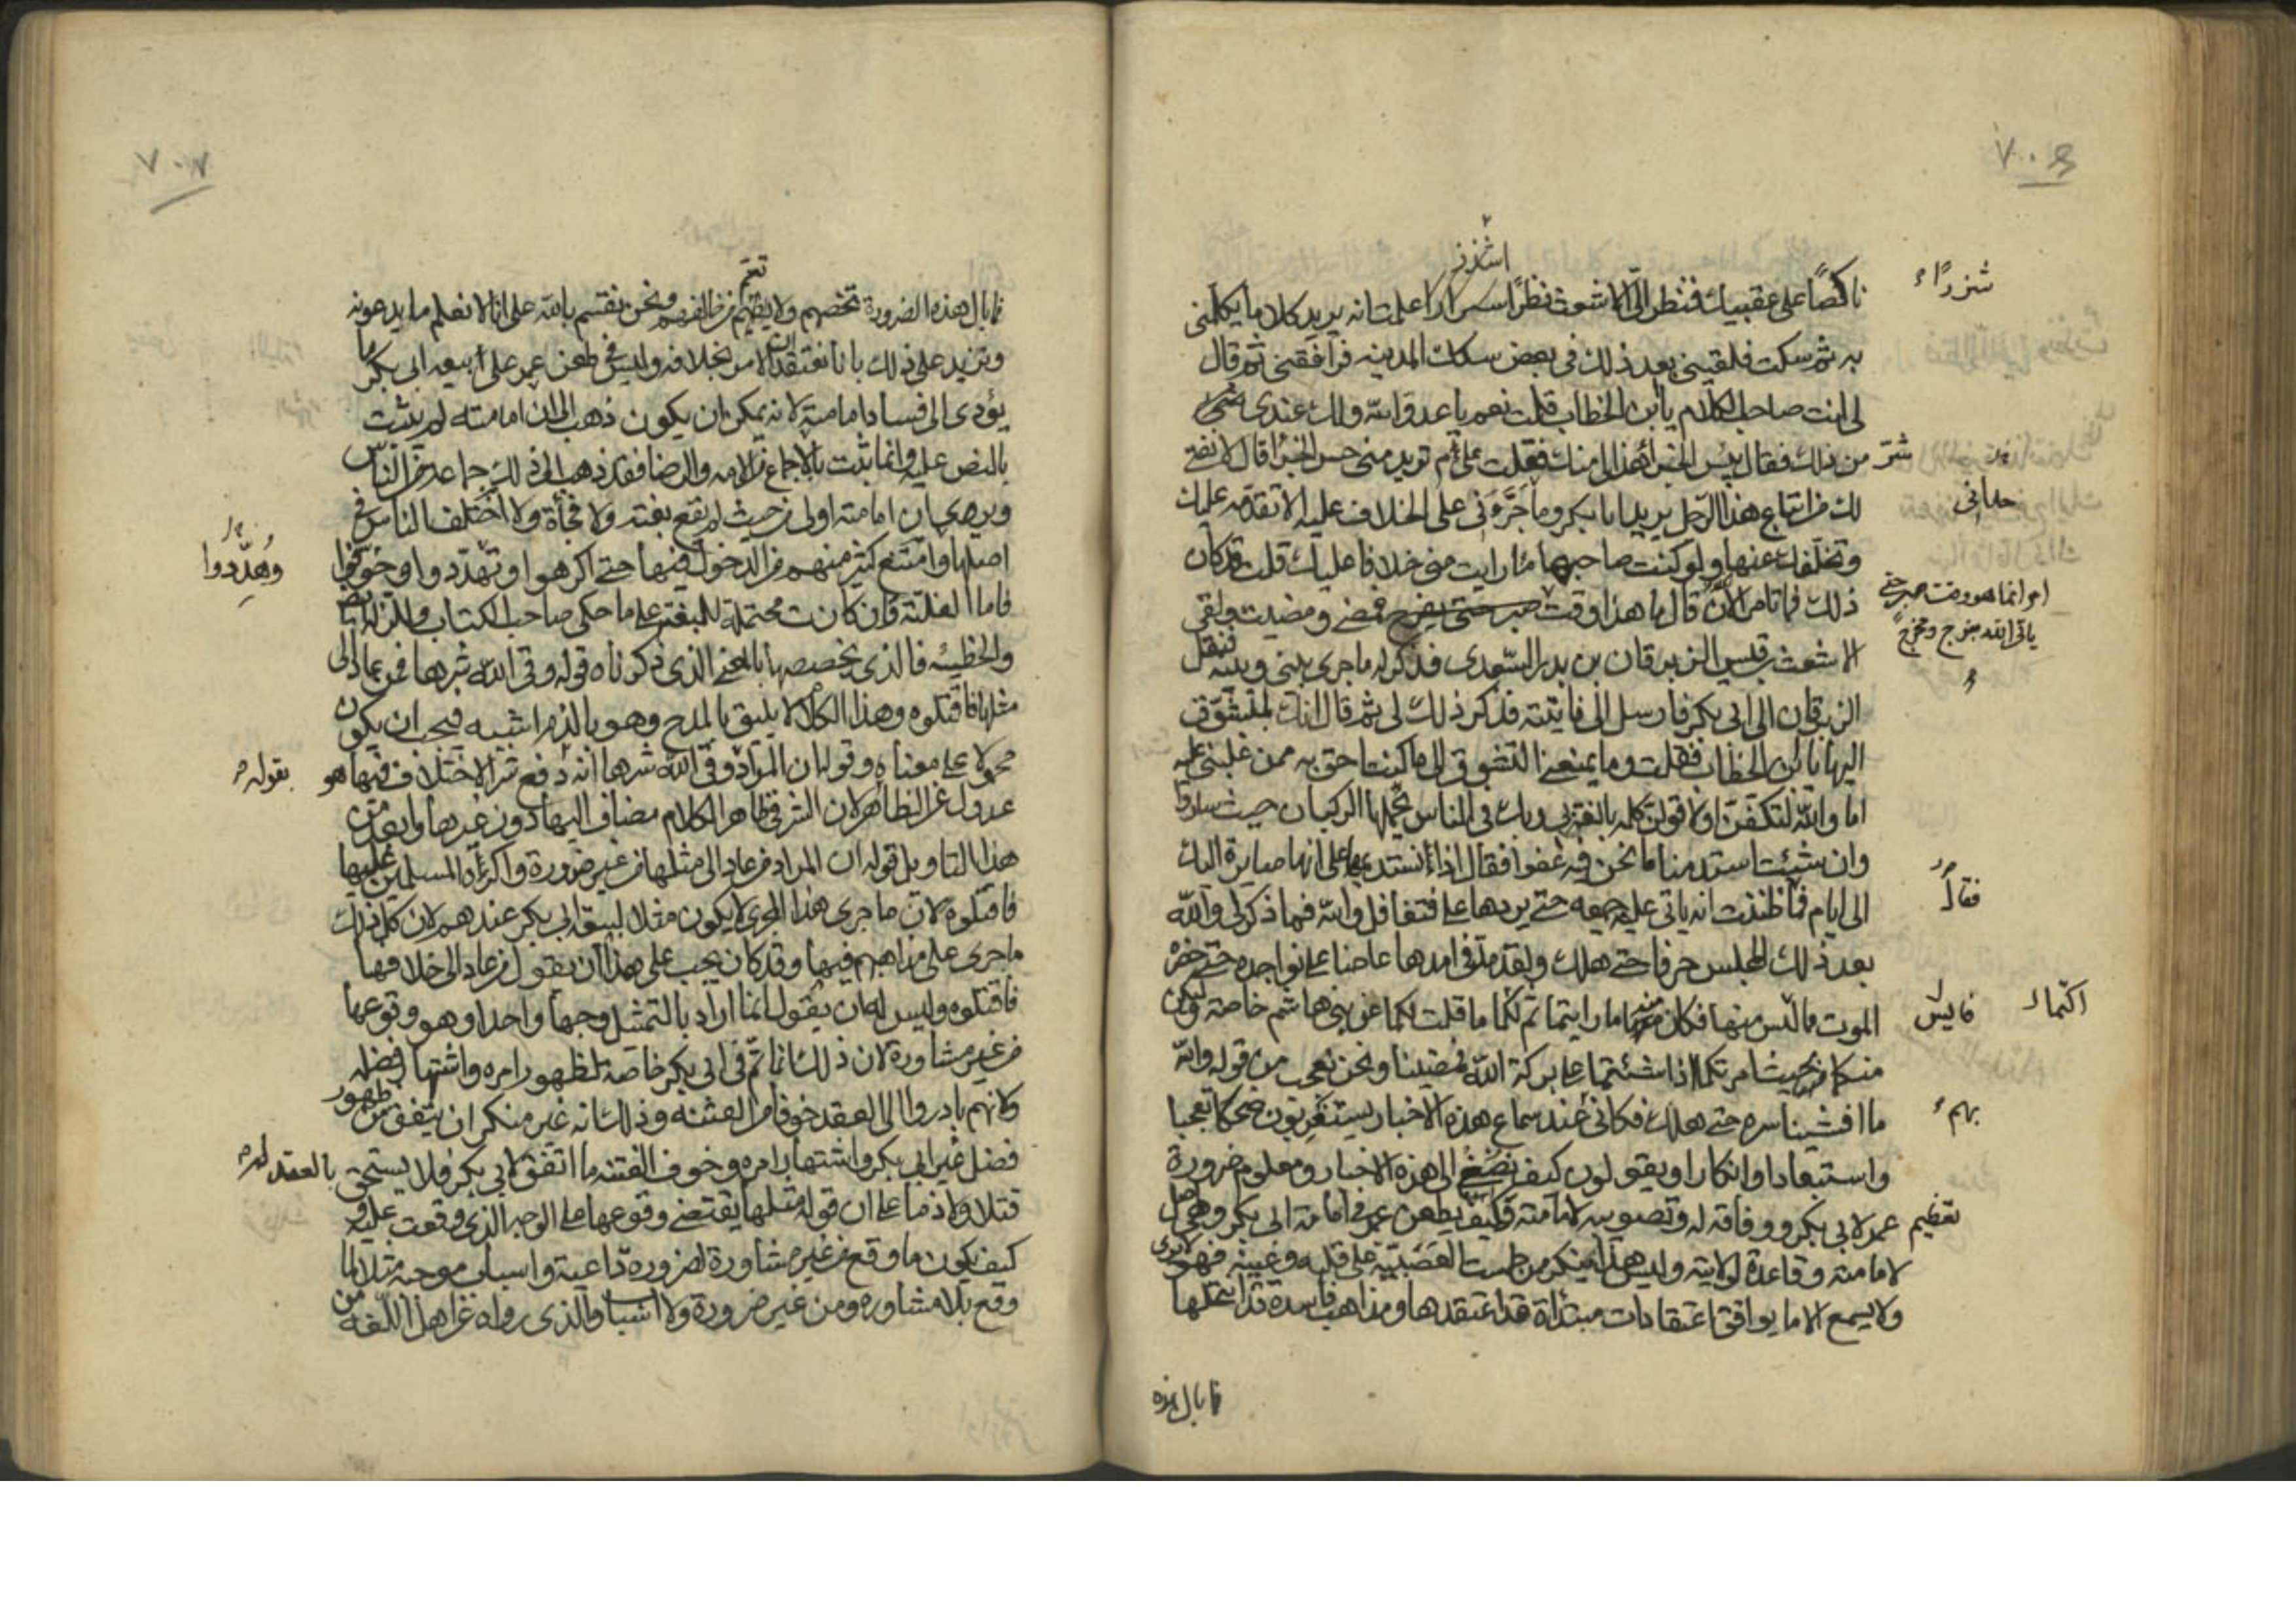 ٧٠٦
ناكصا على عقبيك فنظر الىّ الاشعث نظرا علمت انه يريد كلاما يكلمنى
به ثم سكت فلقينى بعد ذلك فى بعض سكك المدينه فرافقنى ثم قال
لى انت صاحب الكلام يا بن الخطاب قلت نعم يا عدو الله ولك عندى
من ذلك فقال بئس الجزا هذا لى منك فقلت علىٰ م تريد منى حسن الجزا قال لانفتى
لك من اتباع هذا الرجل يريد ابا بكر وما جَرَّءَنى على الخلاف عليه الا تقدّمه عليك
وتخلفك عنها ولو كنت صاحبها ما رايت منى خلافا عليك قلت قد كان
ذلك فما تامر الآن قال ما هذا وقت صبر حتى يفرج فمضى ومضيت ولقى
الاشعث بن قيس الزبرقان بن بدر السّعدى فذكر له ما جرى بينى وبينه فنقل
الزبرقان الى ابى بكر فارسل الىّ فاتيته فذكر ذلك لى ثم قال انك لمتشوّق
اليها يا بن الخطاب فقلت وما يمنعنى التشوق الى ما كنت احق به ممن غلبنى عليه
اما والله لتكفّنّ او لاقولنّ كلمه بالغة بى وبك فى الناس تحملها الركبان حيث ساروا
وان شئت استدمنا ما نحن فيه عفوا فقال اذاً نستديمها على انها صايرة اليك
الى ايام فما ظننت انه ياتى عليه جمعه حتى يردها على فتغافل والله فما ذكر لى والله
بعد ذلك المجلس حرفا حتى هلك ولقد مدّ فى امدها عاضا على نواجذه حتى حضره
الموت فايس منها فكان منه ما رايتما ثم اكتما ما قلت لكما عن بنى هاشم خاصة وليكن
منكما بحيث امرتكما اذا شئتما على بركة الله فمضينا ونحن نعجب من قوله والله
ما افشينا سره حتى هلك فكانى عند سماع هذه الاخبار يستغربون ضحكا تعجبا
واستبعادا وانكارا ويقولون كيف نصغى الى هذه الاخبار ومعلوم ضرورة
تعظيم عمر لابى بكر ووفاقه له وتصويبه لامامته وكيف يطعن عمر فى امامة ابى بكر وهى اصل
لامامته وقاعدة لولايته وليس هذا بمنكر من طمست العَصَبيّة على قلبه وعينه فهو لا يرى
ولا يسمع الا ما يوافق اعتقادات مبتداة قد اعتقدها ومذاهب فاسدة قد انتحلها
شزرًا
شرّ
حدانى
انما هو وقت صبر حتى
ياتى الله بفرج ومخرج
فقال
فايس
اكتما
بهم
فما بال هذه
٧٠٧
فما بال هذه الضرورة تخصهم ولا تعمّ من خالفهم ونحن نقسم بالله على انا لا نعلم ما يدعونه
ونزيد على ذلك بانا نعتقد ان الامر بخلافه وليس فى طعن عمر على بيعه ابى بكر ما
يؤدى الى فساد امامته لانه يمكن ان يكون ذهب الى ان امامته لم تثبت
بالنص عليه وانما ثبتت بالاجماع من الامه والرضا فقد ذهب الى ذلك جماعة من الناس
ويرى ان امامته اولى من حيث لم تقع بغته ولا فجأة ولا اختلف الناس فى
اصلها وامتنع كثير منهم من الدخول فيها حتى اكرهوا وتهدّدوا وخوّفوا
فاما الفلتة وان كانت محتملة للبغته على ما حكى صاحب الكتاب والزلة
والخطيئه فالذى يخصصها بالمعنى الذى ذكرناه قوله وقى الله شرها فمن عاد الى
مثلها فاقتلوه وهذا الكلام لا يليق بالمدح وهو بالذم اشبه فيجب ان يكون
محمولا على معناه وقوله ان المراد وقى الله شرها انه دفع شر الاختلاف فيها هو
عدول عن الظاهر لان الشر فى ظاهر الكلام مضاف اليها دون غيرها وابعد من
هذا التاويل قوله ان المراد من عاد الى مثلها من غير ضرورة واكراه المسلمين عليها
فاقتلوه لان ما جرى هذا المجرى لا يكون مثلا لبيعة ابى بكر عندهم لان كل ذلك
ما جرى على مذاهبهم فيها وقد كان يجب على هذا ان يقول من عاد الى خلافها
فاقتلوه وليس له ان يقول انما اراد بالتمثيل وجها واحدا وهو وقوعها
من غير مشاورة لان ذلك انما تمّ فى ابى بكر خاصة لظهور امره واشتهار فضله
ولانهم بادروا الى العقد خوفا من الفتنه وذلك انه غير منكر ان يتفق من ظهور
فضل غير ابى بكر واشتهار امره وخوف الفتنه ما اتفق لابى بكر فلا يستحق
قتلا ولا ذما على ان قوله مثلها يقتضى وقوعها على الوجه الذى وقعت عليه
كيف يكون ما وقع من غير مشاورة لضرورة داعية واسباب موجبه مثلا لما
وقع بلا مشاوره ومن غير ضرورة ولا اسباب والذى رواه عن اهل اللغه من
وهُدّدوا
بقوله
بالعقد له